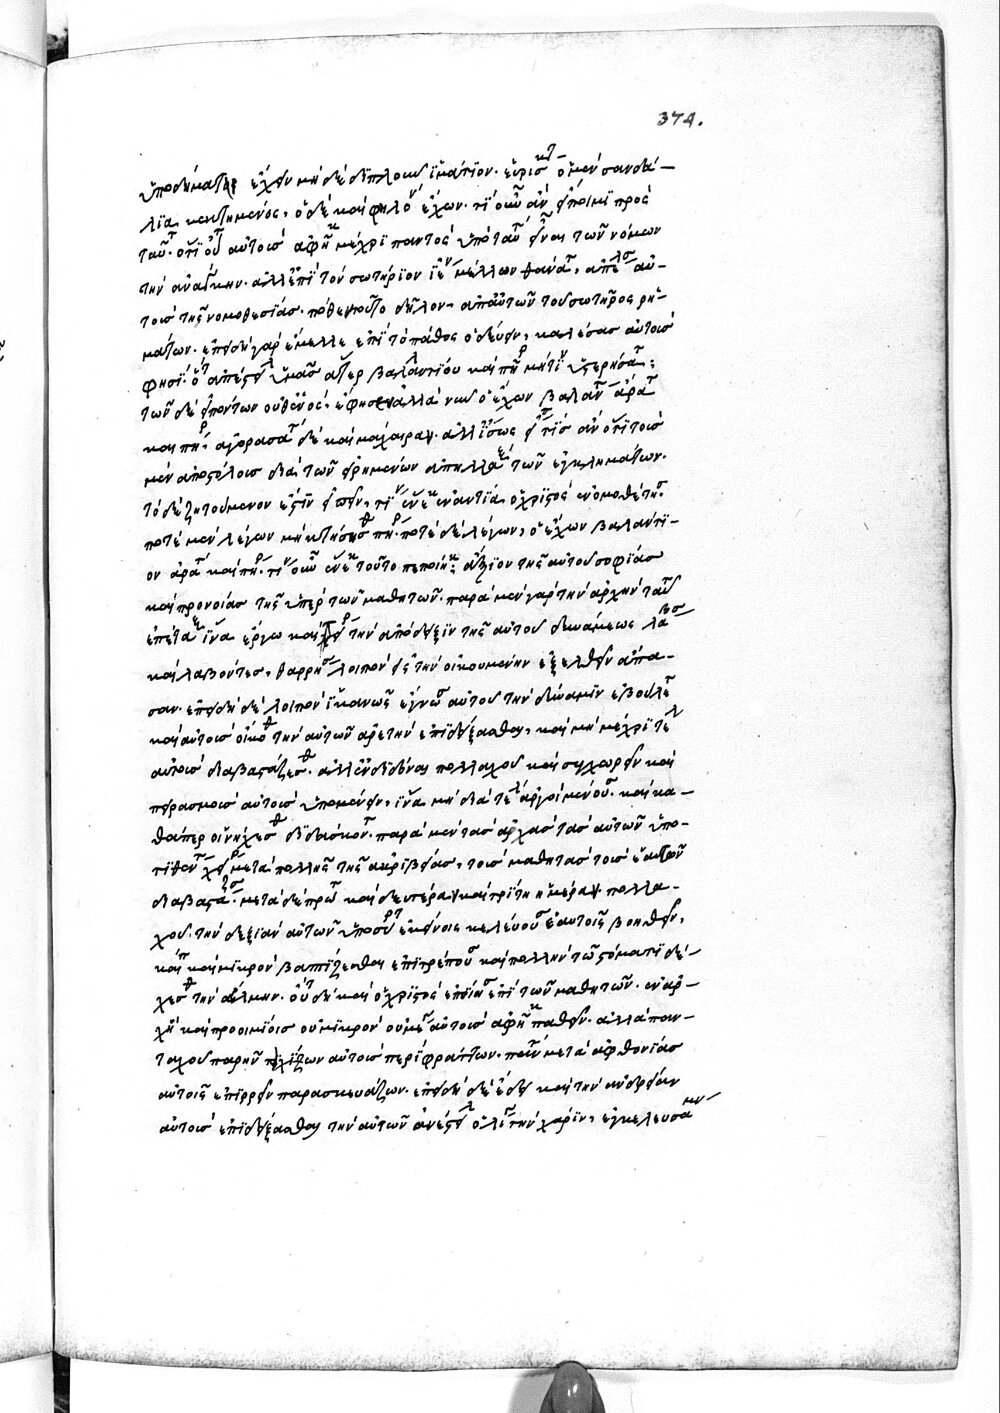 374.
ὑποδήματα ἔχειν μὴ δὲ διπλοῦν ἱμάτιον. εὑρίσκετ ὁ μὲν σανδά-
λια κεκτημένος, ὁ δὲ καὶ φελό ἔχων. τί οὖν ἂν εἴποιμι πρὸς
ταῦτ. ὅτι οὐ αὐτοῖς ἀφῆκ μέχρι παντὸς ὑπὸ ταύτ εἶναι τῶν νόμων
τὴν ἀνάγκην. ἀλλ ἐπὶ τὸν σωτήριον ἰέν μέλλων θάνατ, ἀπέλυσ αὐ-
τοὺς τῆς νομοθεσίας. πόθεν τοῦτο δῆλον. ἀπ αὐτῶν τοῦ σωτῆρος ῥη-
μάτων. ἐπειδὴ γὰρ ἔμελλε ἐπὶ τὸ πάθος ὁδεύειν, καλέσας αὐτοὺς
φησί. ὅτ ἀπέστειλ ὑμᾶς ἄτερ βαλλαντίου καὶ πήρ μή τιν ὑστερήσατ;
τῶν δὲ εἰπόντων οὐθενὸς, ἔφησεν ἀλλὰ νῦν ὁ ἔχων βαλάντ ἀράτ
καὶ πήρ, ἀγορασάτ δὲ καὶ μάχαιραν. ἀλλ ἴσως εἴπ τις ἂν ὅτι τοὺς
μὲν ἀποστόλους διὰ τῶν εἰρημένων ἀπήλλαξ τῶν ἐγκλημάτων.
τὸ δὲ ζητούμενον ἐστὶν εἰπεῖν, τίν ἕνεκ ἐναντία ὁ χριστὸς ἐνομοθέτησ
ποτὲ μὲν λέγων μὴ κτήσησθ πήρ. ποτὲ δὲ λέγων, ὁ ἔχων βαλάντι-
ον ἀράτ καὶ πήρ. τίν οὖν ἕνεκ τοῦτο πεποίηκ; ἄξιον τῆς αὐτοῦ σοφίας
καὶ προνοίας τῆς ὑπὲρ τῶν μαθητῶν. παρὰ μὲν γὰρ τὴν ἀρχὴν ταῦτ
ἐπέταξ ἵνα ἔργω καὶ τὴν ἀπόδειξιν τῆς αὐτοῦ δυνάμεως λάβωσ
καὶ λαβόντες, θαρρήσ λοιπὸν εἰς τὴν οἰκουμένην ἐξελθεῖν ἅπα-
σαν. ἐπειδὴ δὲ λοιπὸν ἱκανῶς ἔγνωσ αὐτοῦ τὴν δύναμιν ἐβούλετ
καὶ αὐτοὺς οἴκοθ τὴν αὐτῶν ἀρετὴν ἐπιδείξασθαι, καὶ μὴ μέχρι τέλ
αὐτοὺς διαβαστάζεσθ. ἀλλ ἐνδιδόναι πολλαχοῦ καὶ συγχωρεῖν καὶ
πειρασμοὺς αὐτοὺς ὑπομένειν, ἵνα μὴ διὰ τέλ ἀργοὶ μένουσ. καὶ κα-
θάπερ οἱ νήχεσθ διδάσκοντ. παρὰ μὲν τὰς ἀρχὰς τὰς αὐτῶν ὑπο-
τιθέντ χεῖρ μετὰ πολλῆς τῆς ἀκριβείας, τοὺς μαθητὰς τοὺς ἑαυτῶν
διαβαστάζουσ. μετὰ δὲ πρώτ καὶ δευτέραν καὶ τρίτην ἡμέραν πολλα-
χοῦ. τὴν δεξιὰν αὐτῶν ὑποσύρτ ἐκείνοις κελεύουσ ἑαυτοῖς βοηθεῖν,
καί π καὶ μικρὸν βαπτίζεσθαι ἐπιτρέπουσ καὶ πολλὴν τῶ στόματι δέ-
χεσθ τὴν ἅλμην. οὕτ δὴ καὶ ὁ χριστὸς ἐποίησ ἐπὶ τῶν μαθητῶν. ἐν ἀρ-
χῇ καὶ προοιμίοις οὐ μικρὸν οὐ μέγ αὐτοὺς ἀφῆκ παθεῖν. ἀλλὰ παν-
ταχοῦ παρῆν τειχίζων αὐτοὺς περιφράττων. πάντ μετὰ ἀφθονίας
αὐτοῖς ἐπιρρεῖν παρασκευάζων. ἐπειδὴ δὲ ἔδει καὶ τὴν ἀνδρείαν
αὐτοὺς ἐπιδείξασθαι τὴν αὐτῶν ἀνέστειλ ὀλίγ τὴν χάριν, ἐγκελευσάμεν